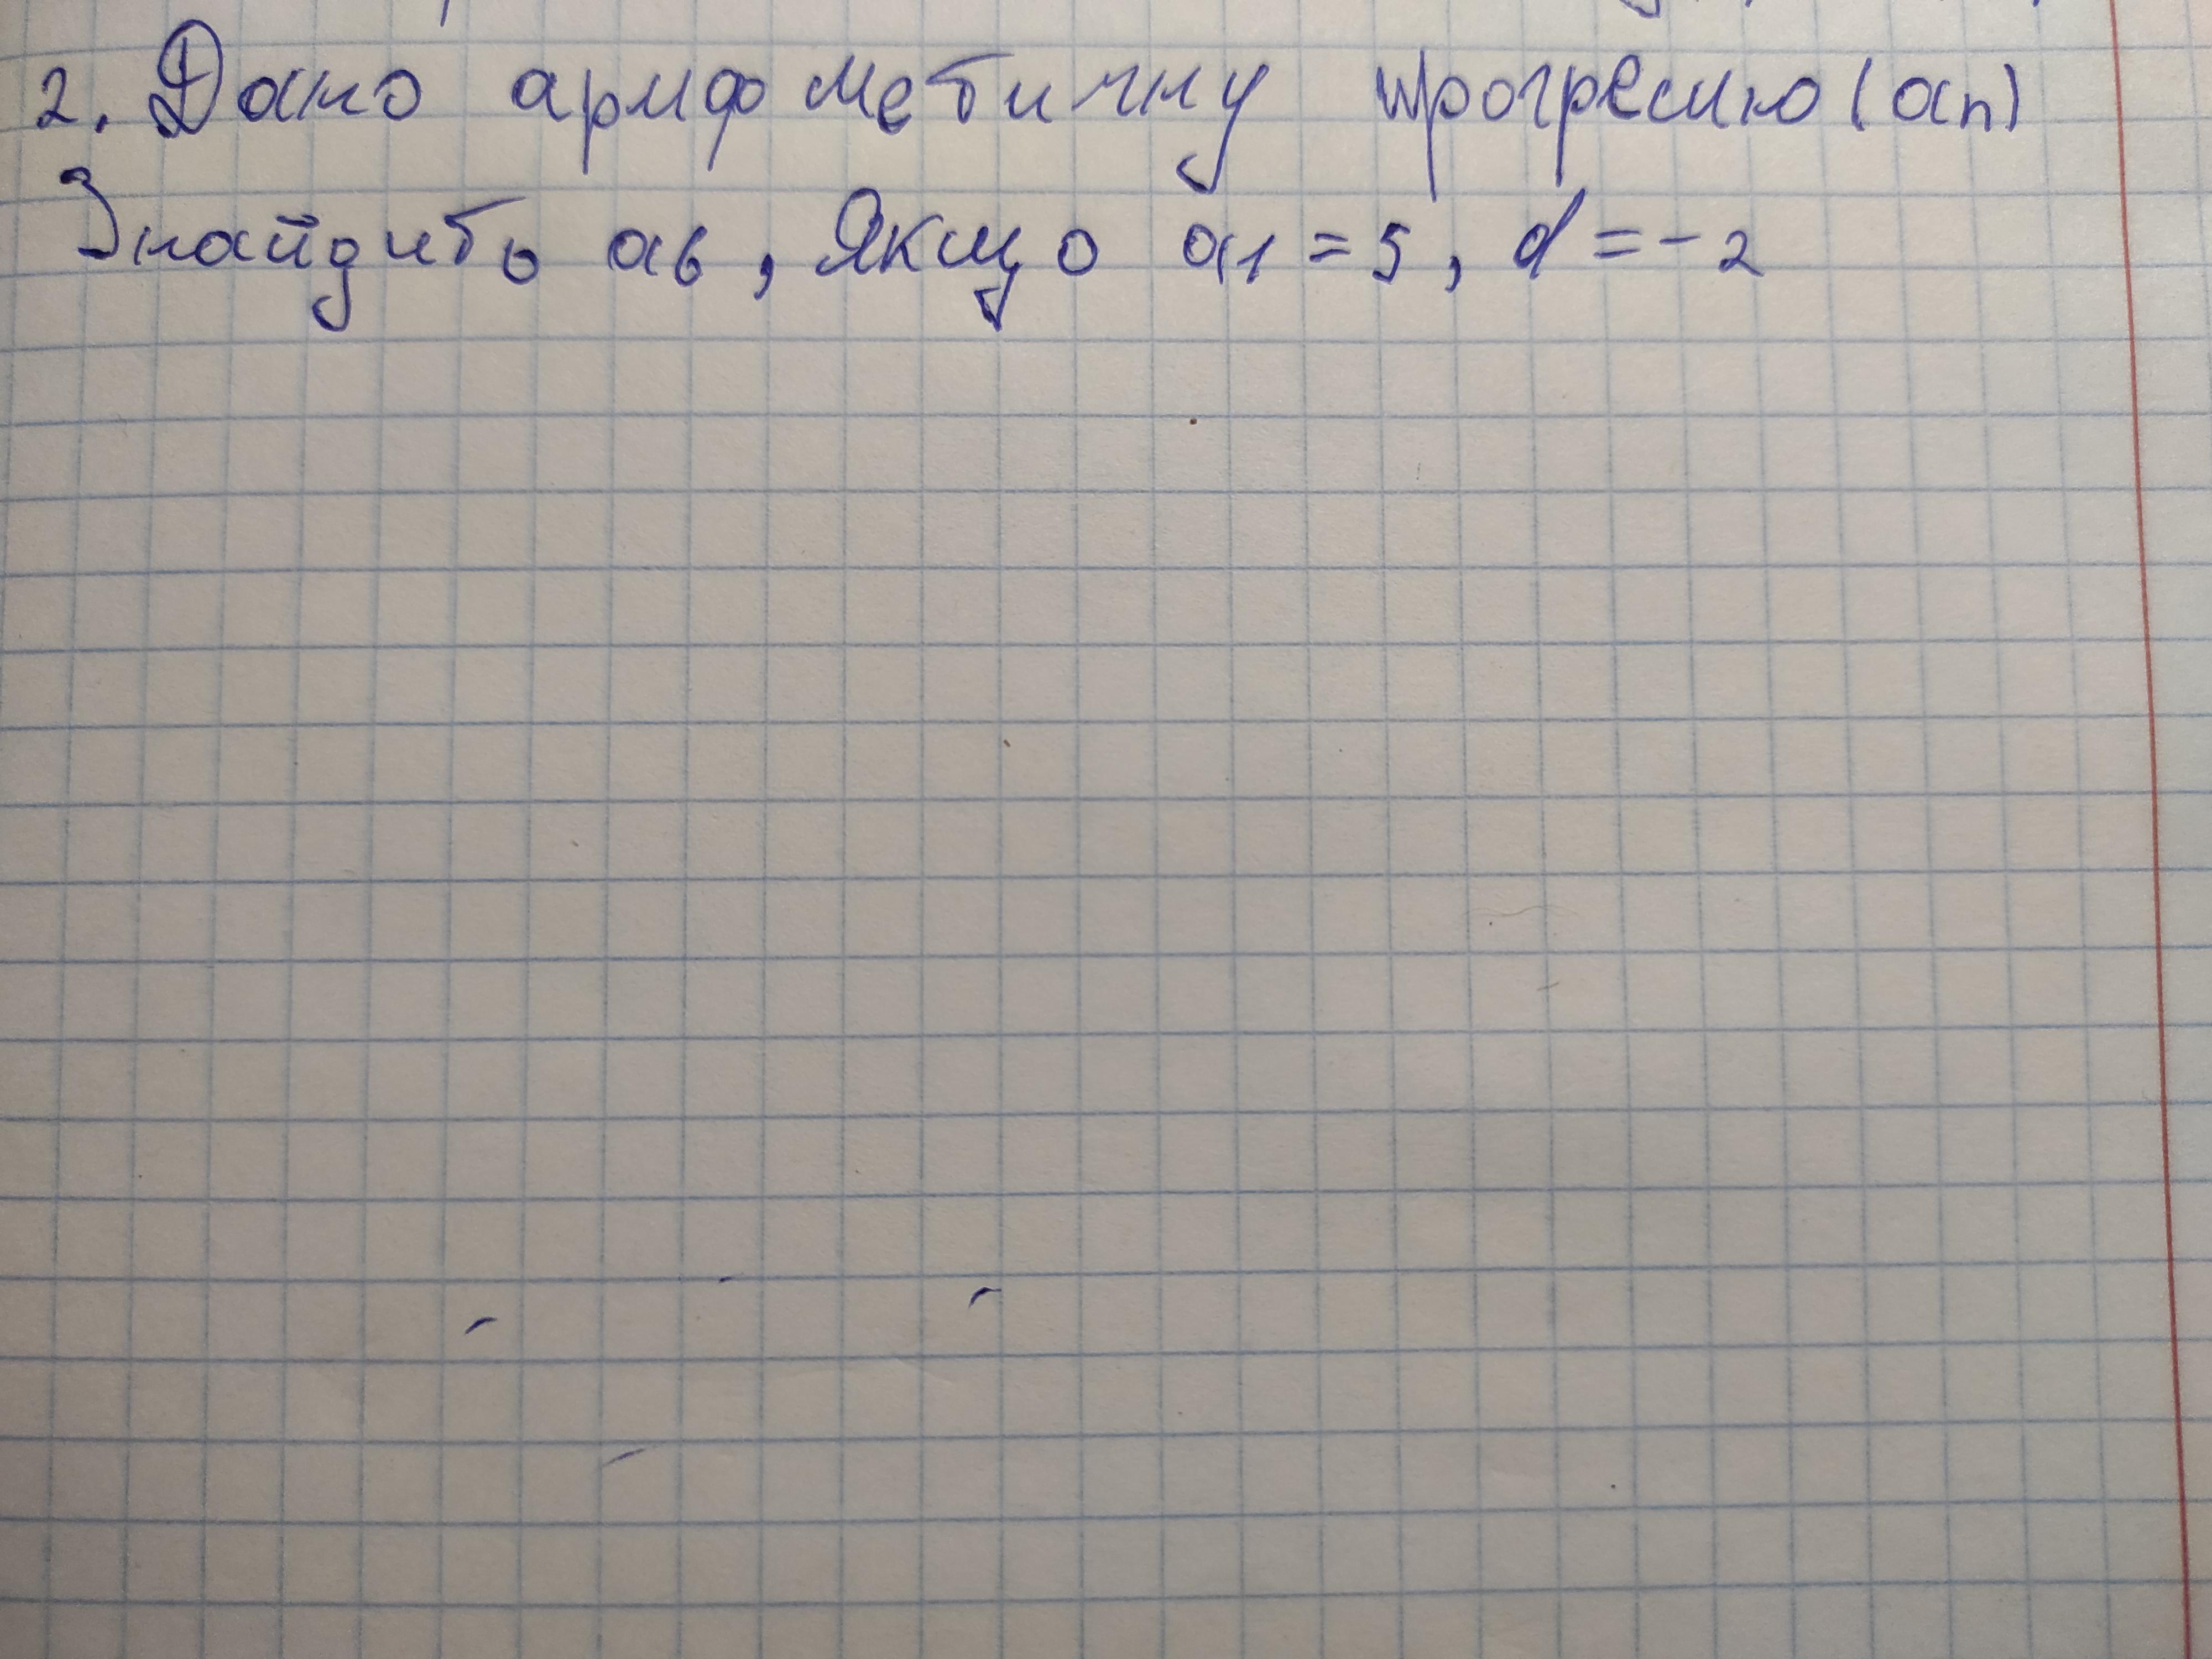 2. Дано арифметичну прогресію (an)
Знайдить a6, Якщо a1 = 5, d = -2